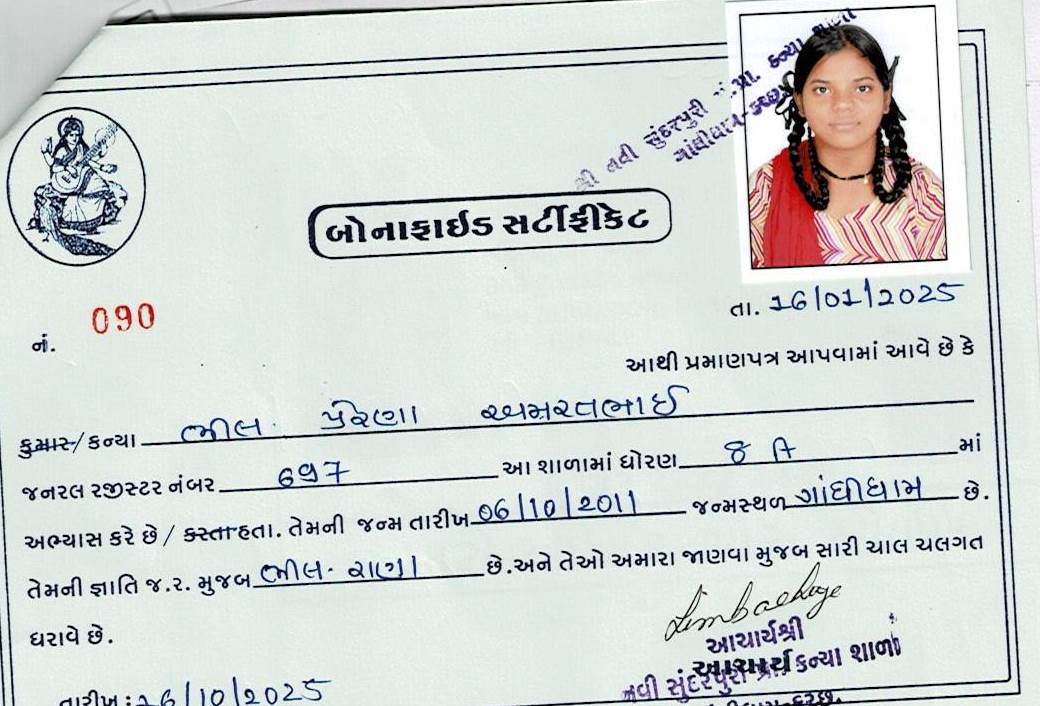 શ્રી નવી સુંદરપુરી પ્રા. કન્યા શાળા
ગાંધીધામ-કચ્છ
બોનાફાઈડ સર્ટીફીકેટ
તા. 16/01/2025
નં. 090
આથી પ્રમાણપત્ર આપવામાં આવે છે કે
કુમાર/કન્યા ભીલ. પ્રેરણા અમરતભાઈ
જનરલ રજીસ્ટર નંબર 697 આ શાળામાં ધોરણ 8 A માં
અભ્યાસ કરે છે / કરતા હતા. તેમની જન્મ તારીખ 06/10/2011 જન્મસ્થળ ગાંધીધામ છે.
તેમની જ્ઞાતિ જ.ર. મુજબ ભીલ. રાણા છે.અને તેઓ અમારા જાણવા મુજબ સારી ચાલ ચલગત
ધરાવે છે.
આચાર્યશ્રી
આચાર્ય
નવી સુંદરપુરી પ્રા. કન્યા શાળા
તારીખ : 16/10/2025